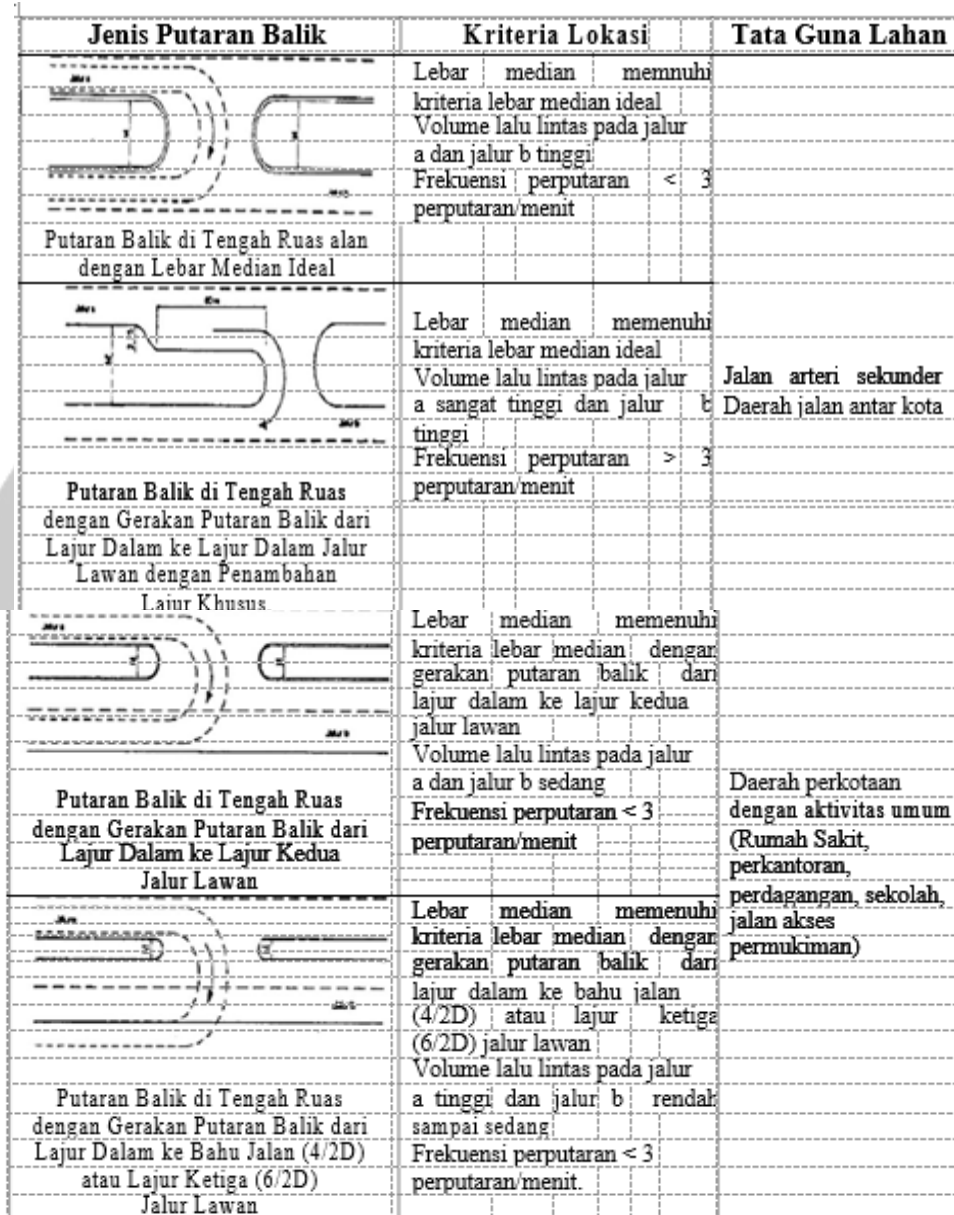 Jenis Putaran Balik
Kriteria Lokasi
Tata Guna Lahan
Putaran Balik di Tengah Ruas alan
dengan Lebar Median Ideal
Lebar median memnuhi
kriteria lebar median ideal
Volume lalu lintas pada jalur
a dan jalur b tinggi
Frekuensi perputaran < 3
perputaran/menit
Putaran Balik di Tengah Ruas
dengan Gerakan Putaran Balik dari
Lajur Dalam ke Lajur Dalam Jalur
Lawan dengan Penambahan
Lajur Khusus
Lebar median memenuhi
kriteria lebar median ideal
Volume lalu lintas pada jalur
a sangat tinggi dan jalur b
tinggi
Frekuensi perputaran > 3
perputaran/menit
Jalan arteri sekunder
Daerah jalan antar kota
Putaran Balik di Tengah Ruas
dengan Gerakan Putaran Balik dari
Lajur Dalam ke Lajur Kedua
Jalur Lawan
Lebar median memenuhi
kriteria lebar median dengan
gerakan putaran balik dari
lajur dalam ke lajur kedua
jalur lawan
Volume lalu lintas pada jalur
a dan jalur b sedang
Frekuensi perputaran < 3
perputaran/menit
Daerah perkotaan
dengan aktivitas umum
(Rumah Sakit,
perkantoran,
perdagangan, sekolah,
jalan akses
permukiman)
Putaran Balik di Tengah Ruas
dengan Gerakan Putaran Balik dari
Lajur Dalam ke Bahu Jalan (4/2D)
atau Lajur Ketiga (6/2D)
Jalur Lawan
Lebar median memenuhi
kriteria lebar median dengan
gerakan putaran balik dari
lajur dalam ke bahu jalan
(4/2D) atau lajur ketiga
(6/2D) jalur lawan
Volume lalu lintas pada jalur
a tinggi dan jalur b rendah
sampai sedang
Frekuensi perputaran < 3
perputaran/menit.